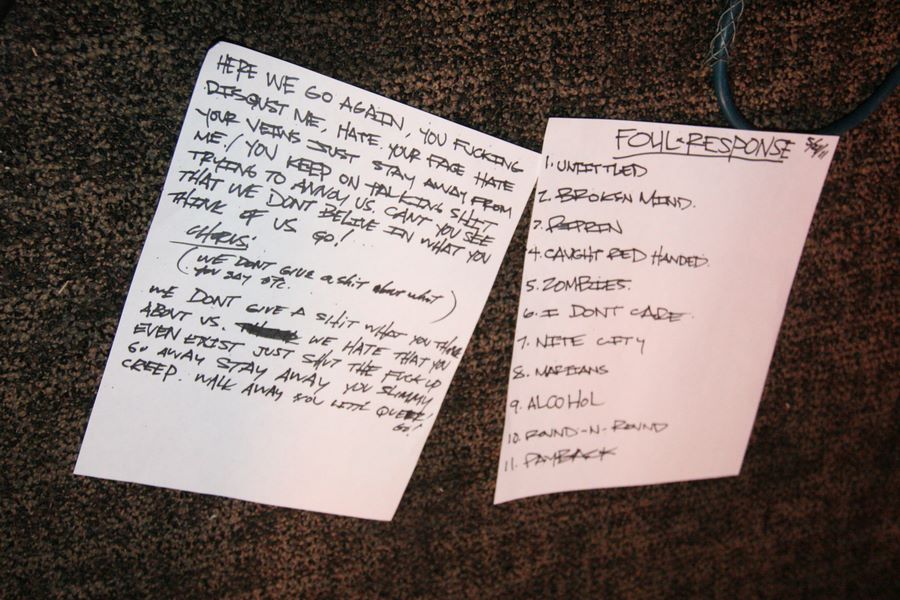 HERE WE GO AGAIN, YOU FUCKING
DISQUST ME, HATE YOUR FACE HATE
YOUR VEINS JUST STAY AWAY FROM
ME! YOU KEEP ON TALKING SHIT
TRYING TO ANNOY US, CANT YOU SEE
THAT WE DONT BELIVE IN WHAT YOU
THINK OF US GO!
CHORUS:
(WE DONT GIVE a shit about what)
YOU SAY ETC.
WE DONT GIVE A SHIT WHAT YOU THINK
ABOUT US. WE HATE THAT YOU
EVEN EXIST JUST SHUT THE FUCK UP
GO AWAY STAY AWAY YOU SLIMMY
CREEP. WALK AWAY YOU
GO!
FOUL-RESPONSE
1. UNTITTLED
2. BROKEN MIND.
3.
4. CAUGHT RED HANDED.
5. ZOMBIES.
6. I DONT CARE.
7. NITE CITY
8. MARTIANS
9. ALCOHOL
10. ROUND-N-ROUND
11. PAYBACK